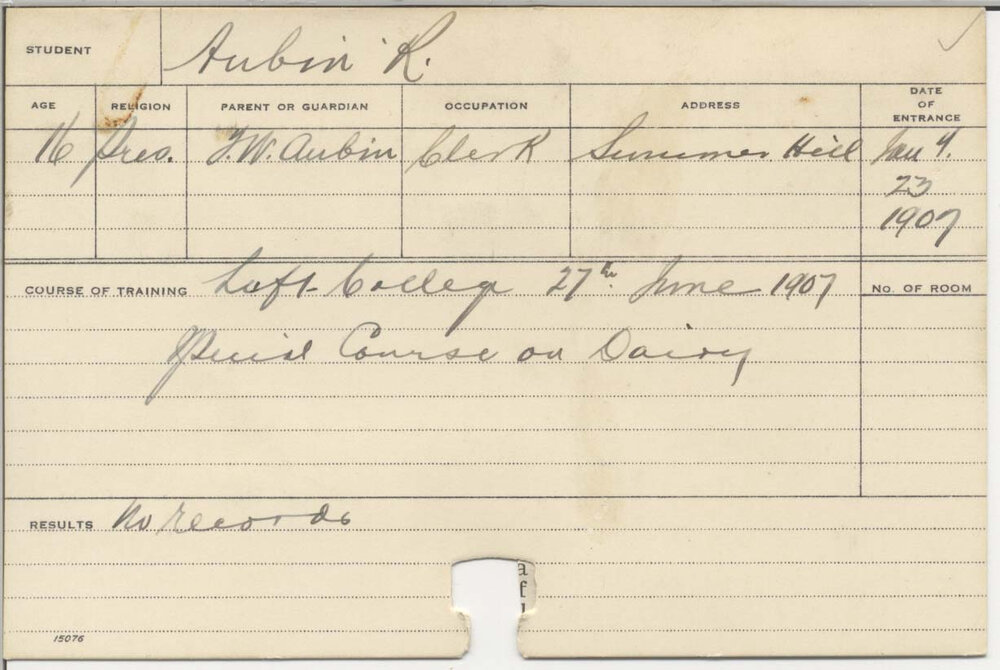 STUDENT Aubin R.
AGE RELIGION PARENT OR GUARDIAN OCCUPATION ADDRESS DATE OF ENTRANCE
16 Pres. T.W. Aubin Clerk Summer Hill Jan 9.
23
1907
COURSE OF TRAINING Left College 27th June 1907 No. OF ROOM
Special Course on Dairy
RESULTS No records
a
f
15076